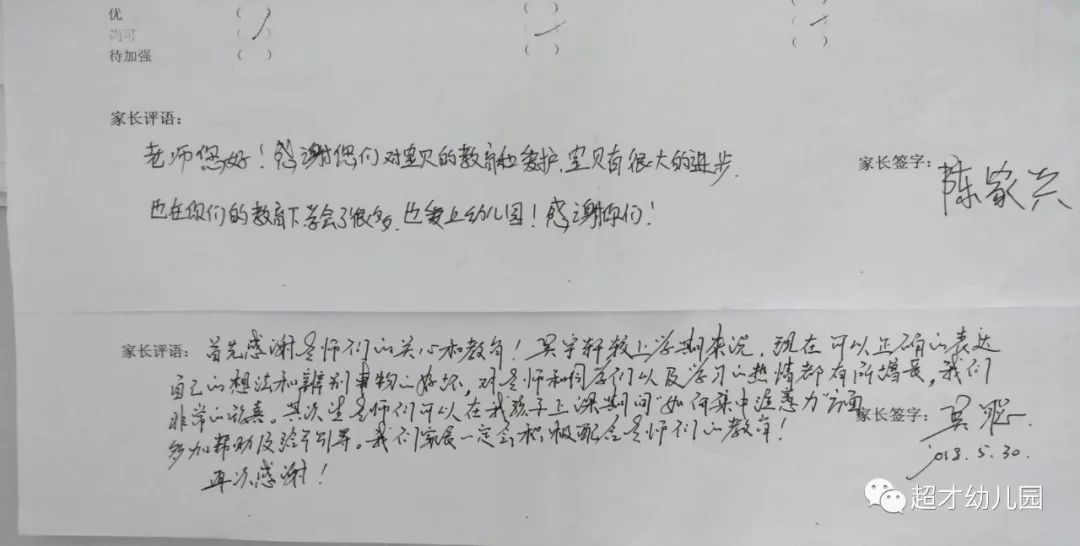 优 ( ) ( ) ( )
尚可 ( ) ( ) ( )
待加强 ( ) ( ) ( )
家长评语:
老师您好!感谢您们对宝贝的教育和爱护,宝贝有很大的进步. 家长签字: 陈家兴
也在你们的教育下学会了很多,也爱上幼儿园!感谢你们!
家长评语: 首先感谢老师们的关心和教育!吴宇轩较上学期来说,现在可以正确的表达
自己的想法和辨别事物的好坏,对老师和同学们以及学习的热情都有所增长,我们
非常的欣喜。其次望老师们可以在我孩子上课期间"如何集中注意力"方面
多加帮助及给予引导。我们家长一定会积极配合老师们的教育! 家长签字: 吴聪.
再次感谢! 2018.5.30.
超才幼儿园